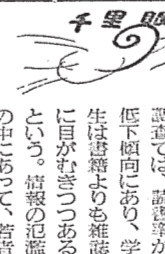 千里眼
調査では、読書率が
低下傾向にあり、学
生は書籍よりも雑誌
に目がむきつつある
という。情報の氾濫
の中にあって、若者